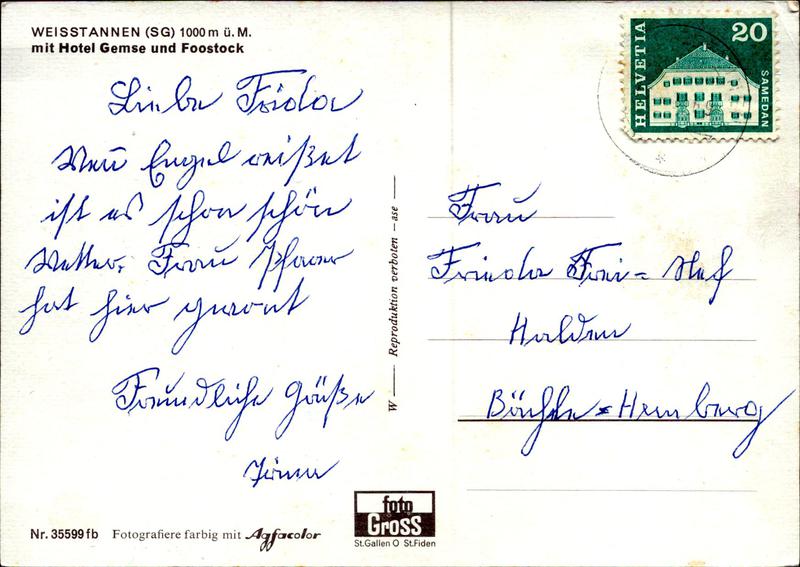 WEISSTANNEN (SG) 1000 m ü. M.
mit Hotel Gemse und Foostock
Liebe Frida
Wen Engel reißet
ist es schon schön
Wetter. Frau Pfarrer
hat hier
Freundliche Grüße
W — Reproduktion verboten – ase —
HELVETIA
20
SAMEDAN
Frau
Frieda Frei=Nef
Halden
Bächle=Hemberg
Nr. 35599 fb Fotografiere farbig mit Agfacolor
foto
Gross
St.Gallen O St.Fiden